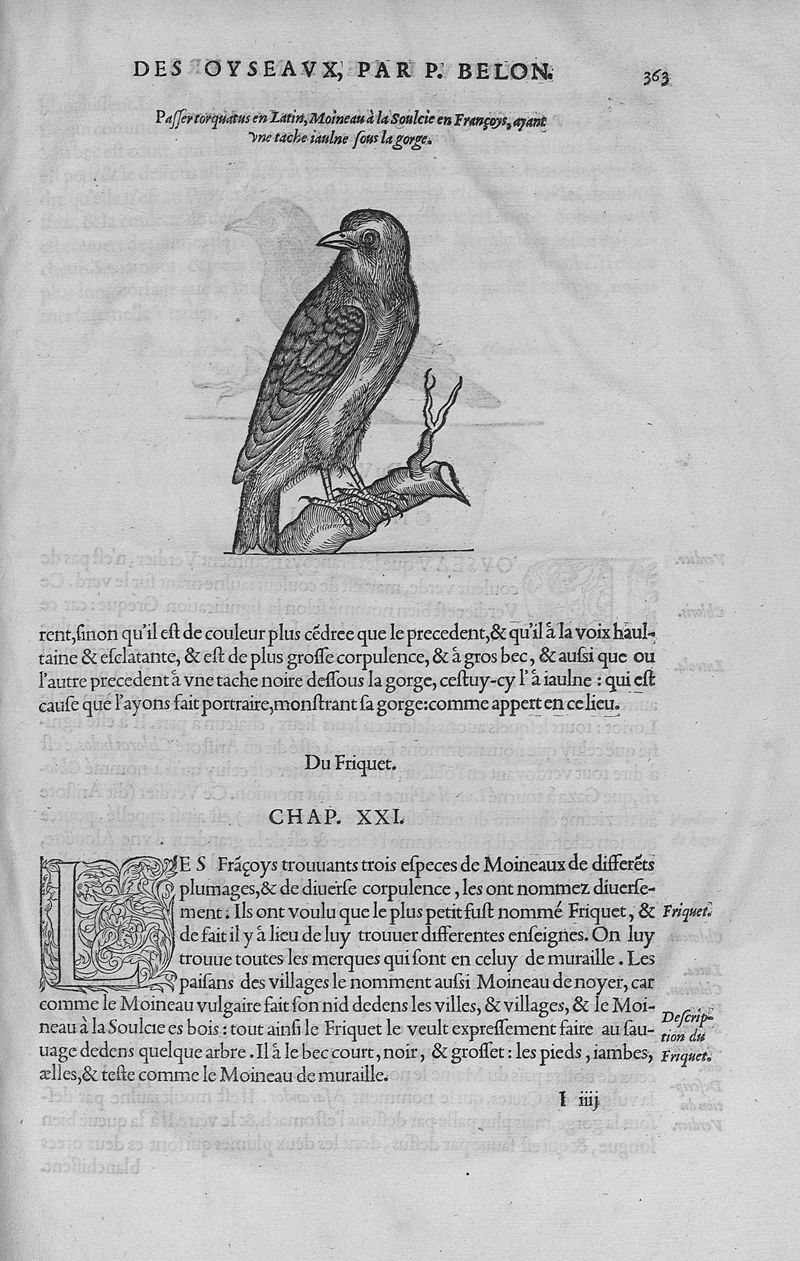 DES OYSEAVX, PAR P. BELON.
363
Paſſer torquatus en Latin, Moineau à la Soulcie en Françoys, ayant
vne tache iaulne ſous la gorge.
rent, ſinon qu'il eſt de couleur plus cẽdree que le precedent, & qu'il à la voix haul-
taine & eſclatante, & eſt de plus groſſe corpulence, & à gros bec, & auſsi que ou
l'autre precedent à vne tache noire deſſous la gorge, ceſtuy-cy l'à iaulne : qui eſt
cauſe que l'ayons fait portraire, monſtrant ſa gorge: comme appert en ce lieu.
Du Friquet.
CHAP. XXI.
LES Frãçoys trouuants trois eſpeces de Moineaux de differẽts
plumages, & de diuerſe corpulence, les ont nommez diuerſe-
ment. Ils ont voulu que le plus petit fuſt nommé Friquet, &
Friquet.
de fait il y à lieu de luy trouuer differentes enſeignes. On luy
trouue toutes les merques qui ſont en celuy de muraille. Les
paiſans des villages le nomment auſsi Moineau de noyer, car
comme le Moineau vulgaire fait ſon nid dedens les villes, & villages, & le Moi-
neau à la Soulcie es bois : tout ainſi le Friquet le veult expreſſement faire au ſau-
uage dedens quelque arbre. Il à le bec court, noir, & groſſet: les pieds, iambes,
ælles, & teſte comme le Moineau de muraille.
Deſcrip-
tion du
Friquet.
I iiij